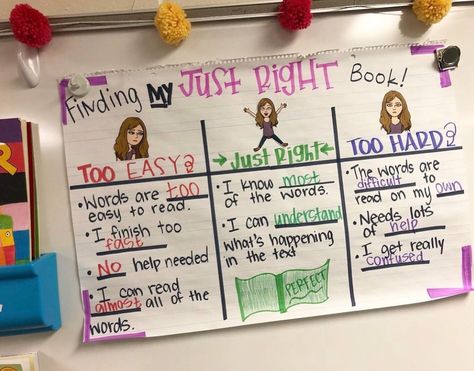 Finding MY JUST RIGHT Book!
TOO EASY?
• Words are too
easy to read.
• I finish too
fast
• No help needed
• I can read
almost all of the
words.
Just Right
• I know most
of the words.
• I can understand
what's happening
in the text
PERFECT
TOO HARD?
• The words are
difficult to
read on my own
• Needs lots
of help
• I get really
confused